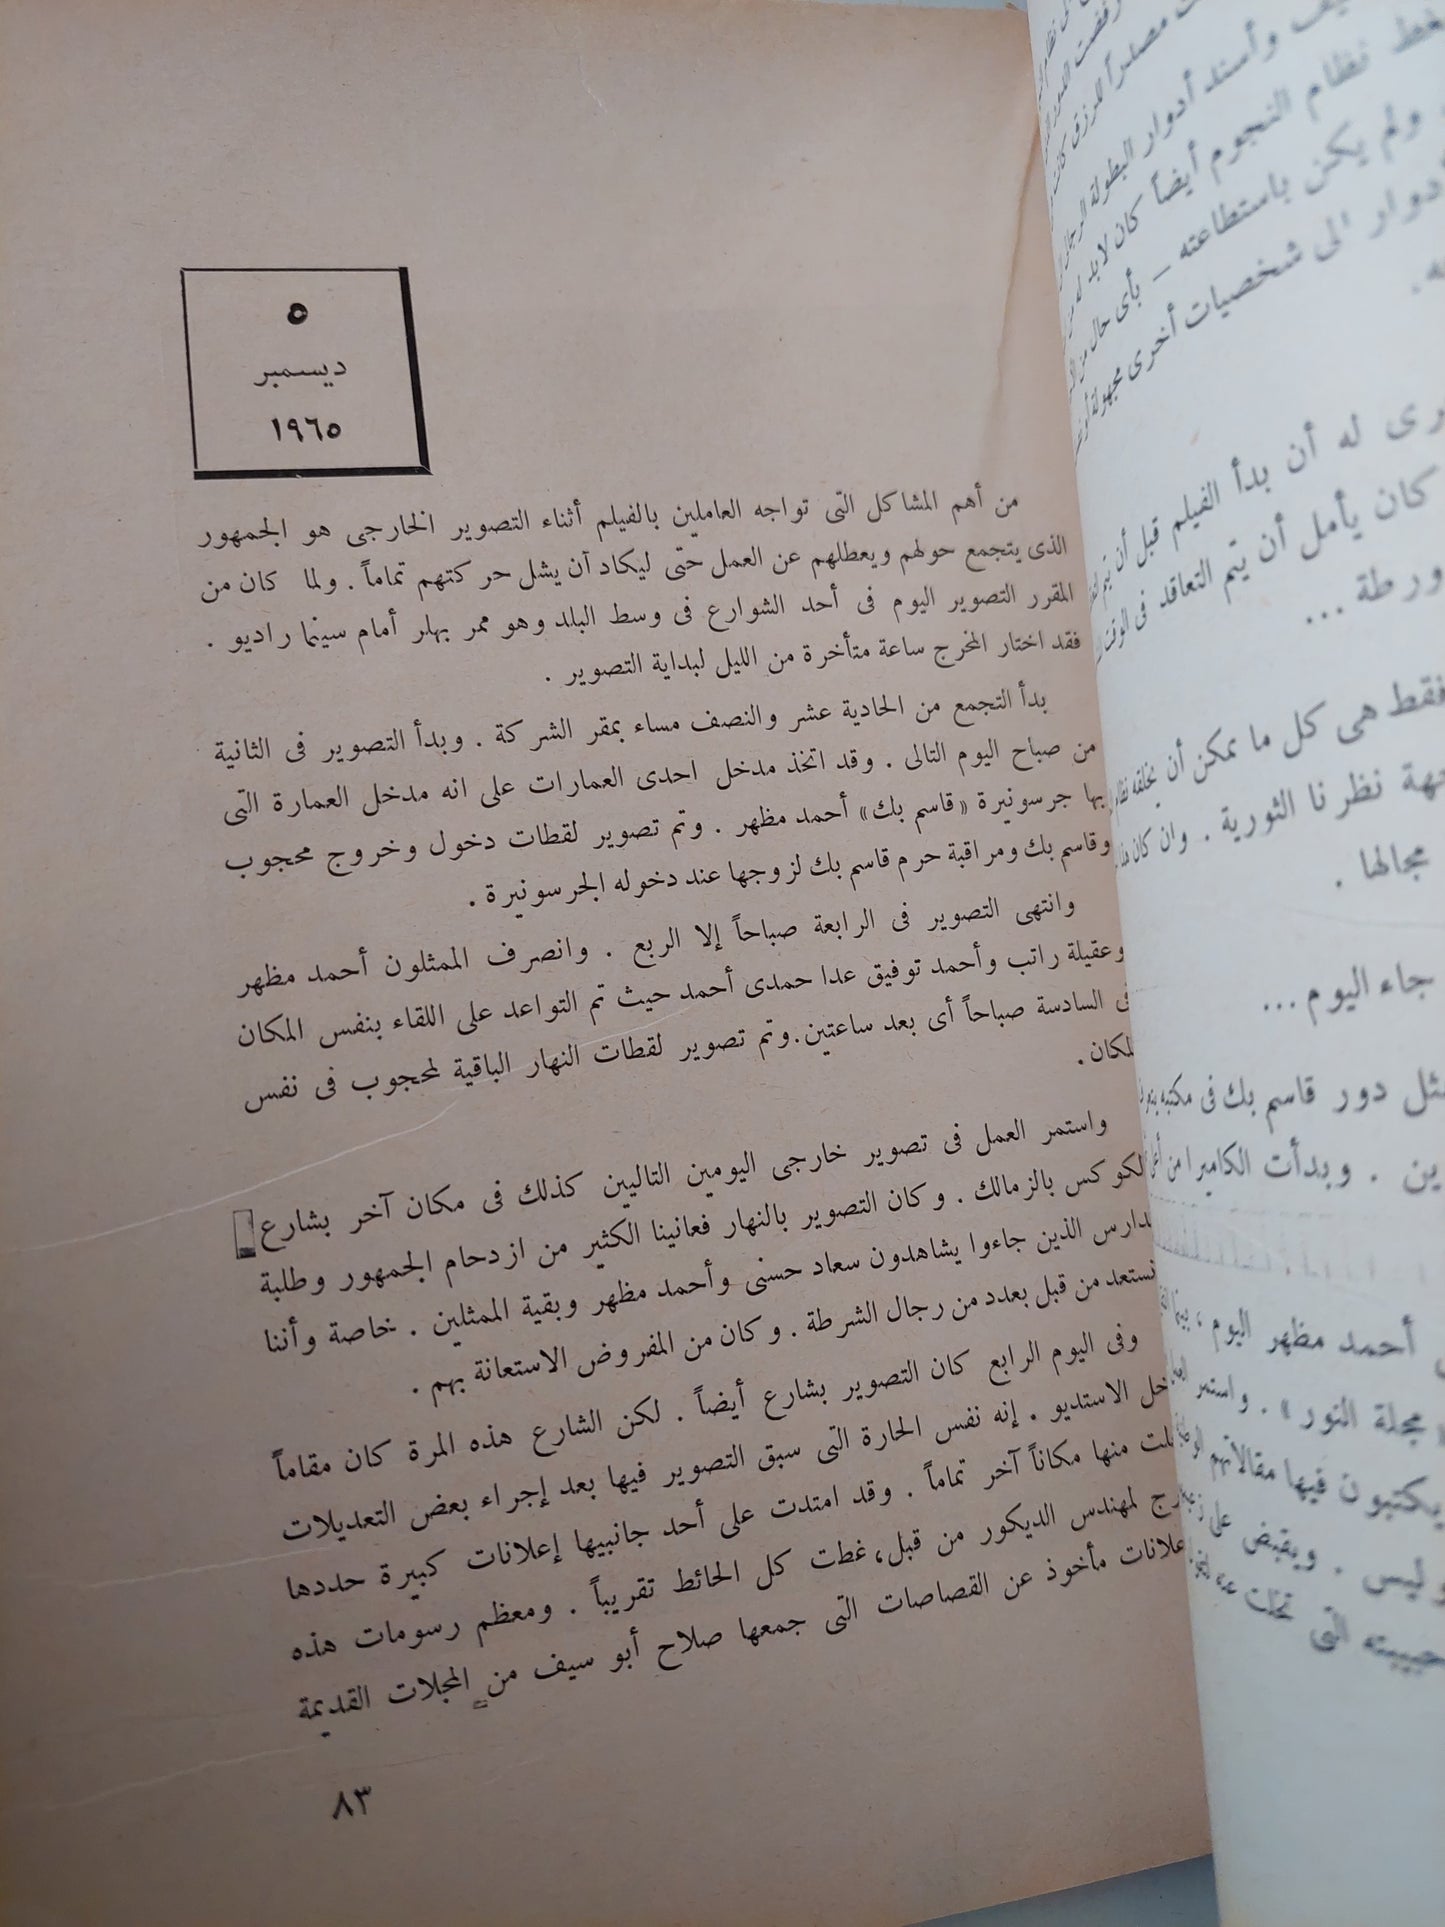 ٥
ديسمبر
١٩٦٥
من أهم المشاكل التى تواجه العاملين بالفيلم أثناء التصوير الخارجى هو الجمهور
الذى يتجمع حولهم ويعطلهم عن العمل حتى ليكاد أن يشل حركتهم تماماً . ولما كان من
المقرر التصوير اليوم فى أحد الشوارع فى وسط البلد وهو ممر بهلر أمام سينما راديو .
فقد اختار المخرج ساعة متأخرة من الليل لبداية التصوير .
بدأ التجمع من الحادية عشر والنصف مساء بمقر الشركة . وبدأ التصوير فى الثانية
من صباح اليوم التالى . وقد اتخذ مدخل احدى العمارات على انه مدخل العمارة التى
بها جرسونيرة «قاسم بك» أحمد مظهر . وتم تصوير لقطات دخول وخروج محجوب
وقاسم بك ومراقبة حرم قاسم بك لزوجها عند دخوله الجرسونيرة .
وانتهى التصوير فى الرابعة صباحاً إلا الربع . وانصرف الممثلون أحمد مظهر
وعقيلة راتب وأحمد توفيق عدا حمدى أحمد حيث تم التواعد على اللقاء بنفس المكان
فى السادسة صباحاً أى بعد ساعتين . وتم تصوير لقطات النهار الباقية لمحجوب فى نفس
المكان .
واستمر العمل فى تصوير خارجى اليومين التاليين كذلك فى مكان آخر بشارع
الكوكس بالزمالك . وكان التصوير بالنهار فعانينا الكثير من ازدحام الجمهور وطلبة
المدارس الذين جاءوا يشاهدون سعاد حسنى وأحمد مظهر وبقية الممثلين . خاصة وأننا
نستعد من قبل بعدد من رجال الشرطة . وكان من المفروض الاستعانة بهم .
وفى اليوم الرابع كان التصوير بشارع أيضاً . لكن الشارع هذه المرة كان مقاماً
داخل الاستديو . إنه نفس الحارة التى سبق التصوير فيها بعد إجراء بعض التعديلات
منها مكاناً آخر تماماً . وقد امتدت على أحد جانبيها إعلانات كبيرة حددها
لمهندس الديكور من قبل، غطت كل الحائط تقريباً . ومعظم رسومات هذه
الاعلانات مأخوذ عن القصاصات التى جمعها صلاح أبو سيف من المجلات القديمة
٨٣
وأسند أدوار البطولة
نظام النجوم أيضاً كان لابد له
ولم يكن باستطاعته – بأى حال من
شخصيات أخرى مجهولة
له أن بدأ الفيلم قبل أن يتم
كان يأمل أن يتم التعاقد فى الوقت
ورطة ...
فقط هى كل ما يمكن أن يخلقه
نظرنا الثورية . وان كان
مجالها .
جاء اليوم ...
دور قاسم بك فى مكتبه
وبدأت الكاميرا من
أحمد مظهر اليوم ، بينما
مجلة النور» . واستمر
يكتبون فيها مقالاتهم
وليس . ويقبض على
حبيبته التى تخلت عنه